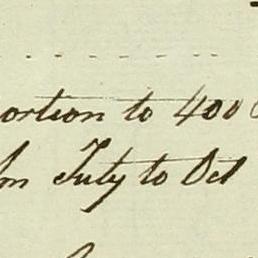 ortion to 400
m July to Oct